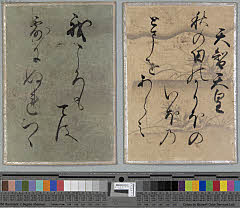 天智天皇
秋の田のかりほの
いほの
とまをあらみ
我ころも
ては
露にぬれつゝ